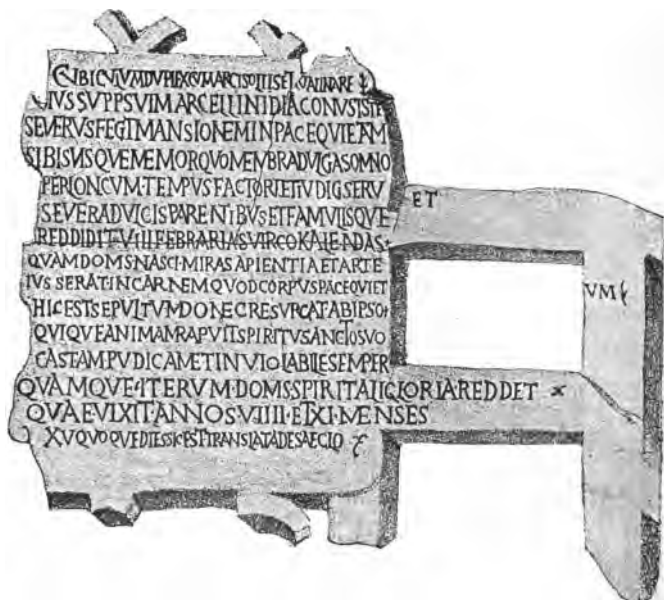 CVBICVLVMDVPLEXCVMARCISOLIISETLVMINARE
IVSSVPPSVIMARCELLINIDIACONVSISTE
SEVERVSFECITMANSIONEMINPACEQVIETAM
SIBISVISQVEMEMORQVOMEMBRADVLCIASOMNO
PERLONGVM·TEMPVSFACTORIETIVDICISERV
ET
SEVERADVLCISPARENTIBVSETFAMVLISQVE
REDDIDIT·VIIIFEBRARIASVIRGOKALENDAS
QVAMDOMSNASCI·MIRASAPIENTIAETARTE
IVSSERATINCARNEMQVODCORPVSPACEQVIET
VM
HICESTSEPVLTVMDONECRESVRGATABIPSO
QVIQVEANIMAMRAPVITSPIRITVSANCTOSVO
CASTAMPVDICAMETINVIOLABILESEMPER
QVAMQVE·ITERVM·DOMSSPIRITALIGLORIAREDDET
QVAEVIXITANNOSVIIII·ETXI·MENSES
XVQVOQVEDIESSICESTTRANSLATADESAECLO